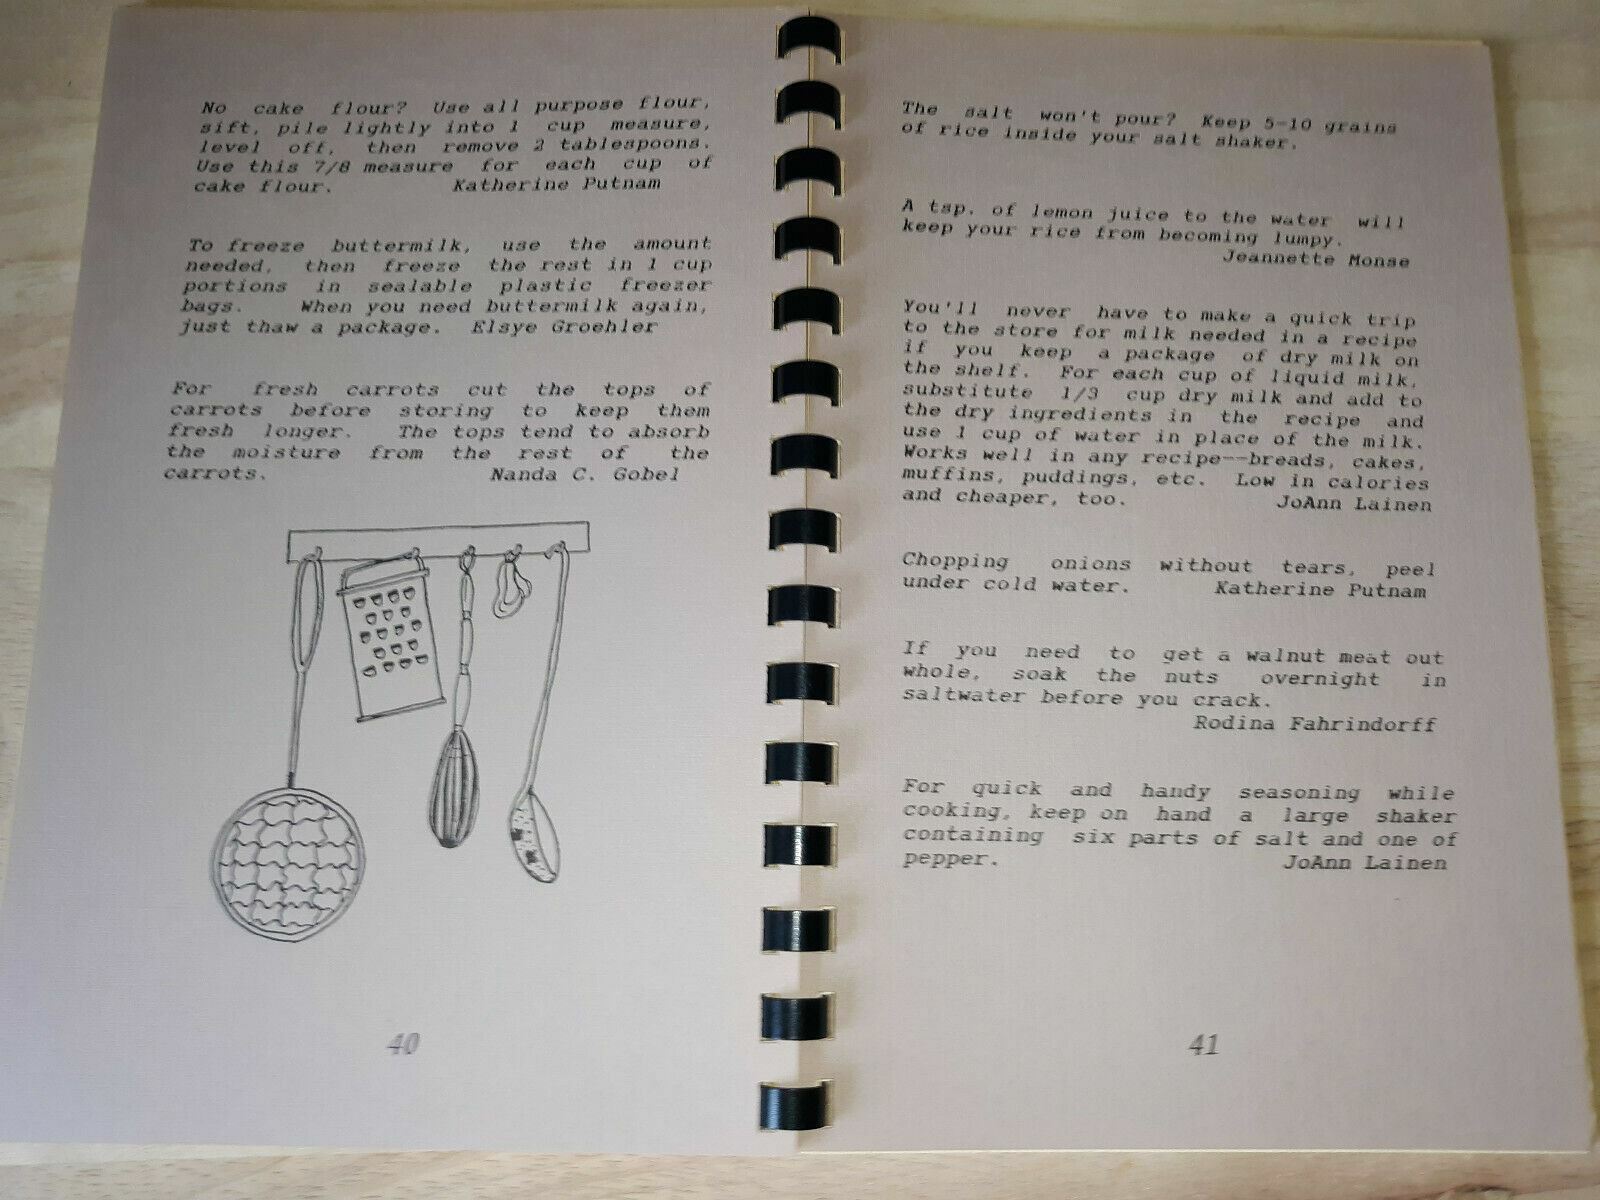 No cake flour? Use all purpose flour,
sift, pile lightly into 1 cup measure,
level off, then remove 2 tablespoons.
Use this 7/8 measure for each cup of
cake flour. Katherine Putnam
To freeze buttermilk, use the amount
needed, then freeze the rest in 1 cup
portions in sealable plastic freezer
bags. When you need buttermilk again,
just thaw a package. Elsye Groehler
For fresh carrots cut the tops of
carrots before storing to keep them
fresh longer. The tops tend to absorb
the moisture from the rest of the
carrots. Nanda C. Gobel
40
The salt won't pour? Keep 5-10 grains
of rice inside your salt shaker.
A tsp. of lemon juice to the water will
keep your rice from becoming lumpy.
Jeannette Monse
You'll never have to make a quick trip
to the store for milk needed in a recipe
if you keep a package of dry milk on
the shelf. For each cup of liquid milk,
substitute 1/3 cup dry milk and add to
the dry ingredients in the recipe and
use 1 cup of water in place of the milk.
Works well in any recipe--breads, cakes,
muffins, puddings, etc. Low in calories
and cheaper, too. JoAnn Lainen
Chopping onions without tears, peel
under cold water. Katherine Putnam
If you need to get a walnut meat out
whole, soak the nuts overnight in
saltwater before you crack.
Rodina Fahrindorff
For quick and handy seasoning while
cooking, keep on hand a large shaker
containing six parts of salt and one of
pepper. JoAnn Lainen
41